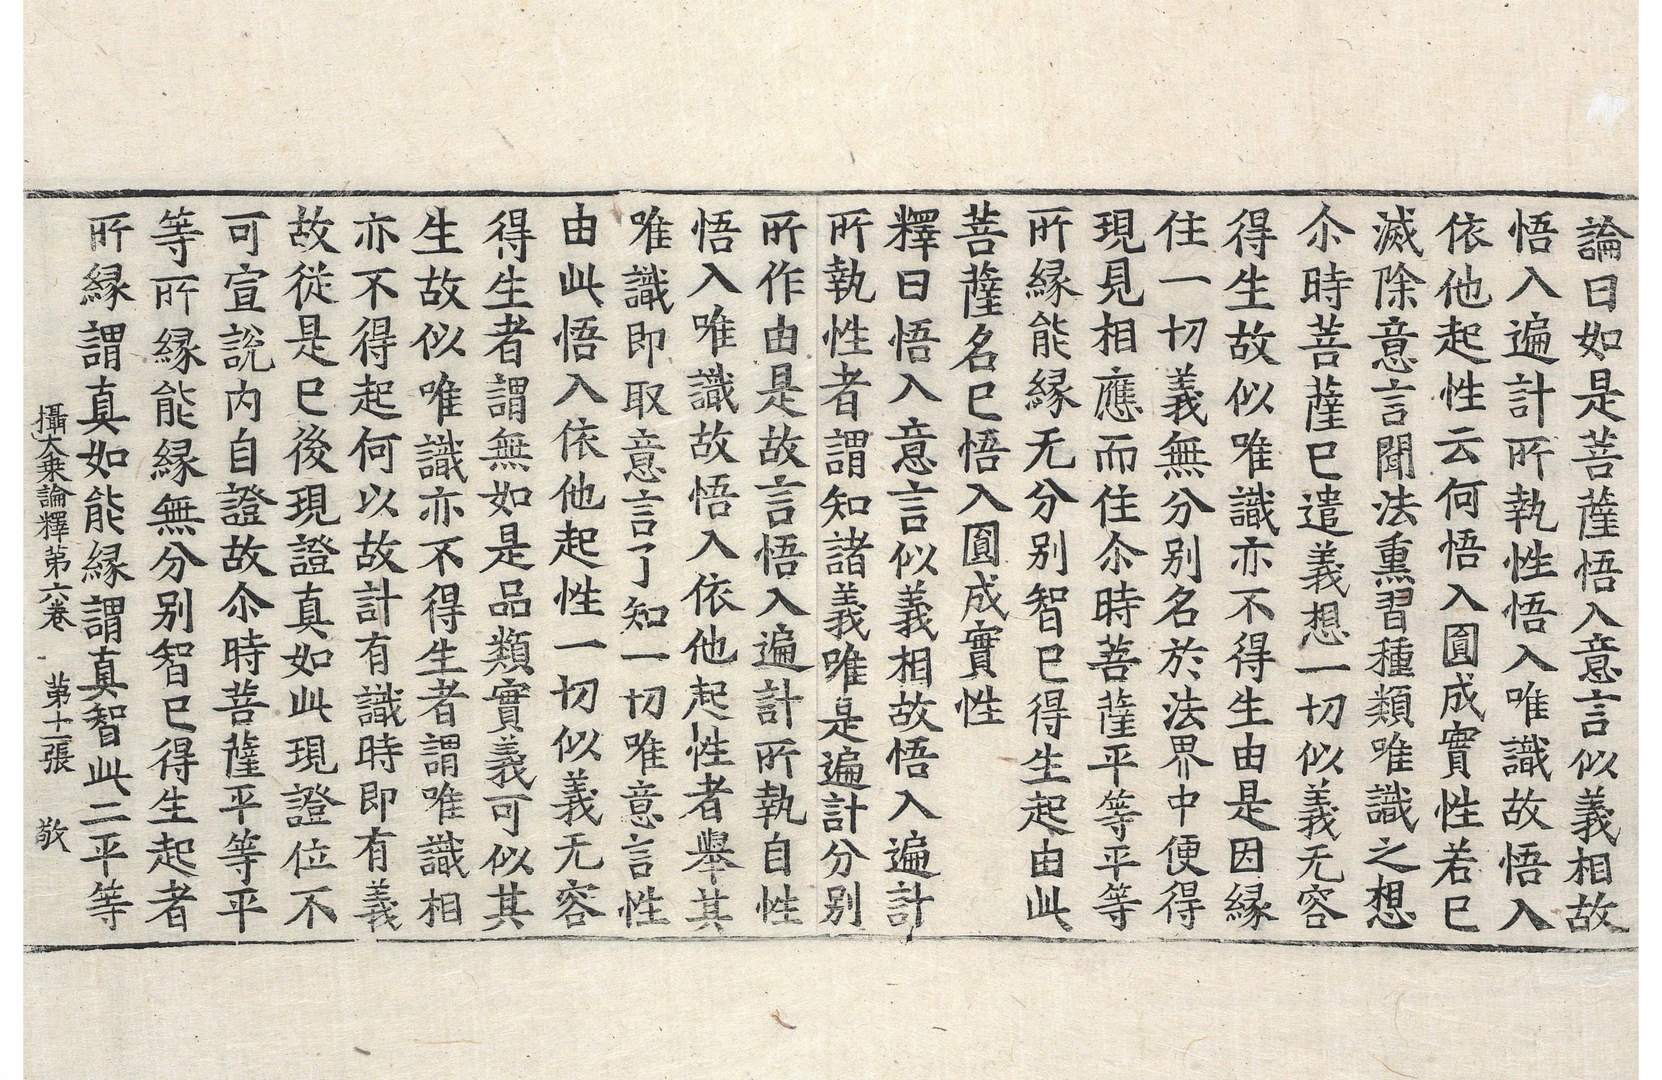 論曰如是菩薩悟入意言似義相故
悟入遍計所執性悟入唯識故悟入
依他起性云何悟入圓成實性若已
滅除意言聞法熏習種類唯識之想
尒時菩薩已遣義想一切似義无容
得生故似唯識亦不得生由是因緣
住一切義無分別名於法界中便得
現見相應而住尒時菩薩平等平等
所緣能緣无分別智已得生起由此
菩薩名已悟入圓成實性
釋曰悟入意言似義相故悟入遍計
所執性者謂知諸義唯是遍計分別
所作由是故言悟入遍計所執自性
悟入唯識故悟入依他起性者舉其
唯識即取意言了知一切唯意言性
由此悟入依他起性一切似義无容
得生者謂無如是品類實義可似其
生故似唯識亦不得生者謂唯識相
亦不得起何以故計有識時即有義
故從是已後現證真如此現證位不
可宣說內自證故尒時菩薩平等平
等所緣能緣無分別智已得生起者
所緣謂真如能緣謂真智此二平等
攝大乘論釋第六卷 第十二張 敬